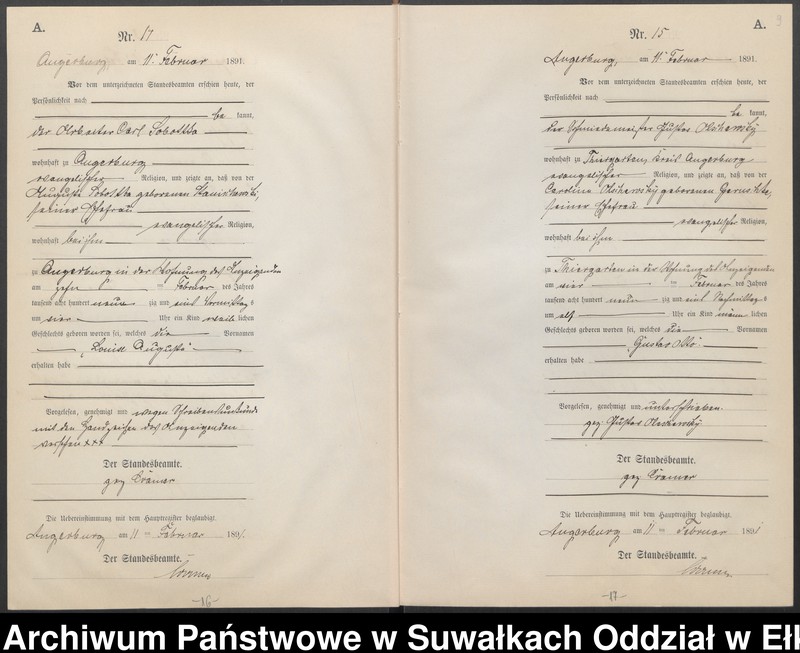 A.
Nr. 17
Angerburg, am 11. Februar 1891.
Vor dem unterzeichneten Standesbeamten erschien heute, der
Persönlichkeit nach
be kannt,
der Arbeiter Carl Sobottka
wohnhaft zu Angerburg
evangelischer Religion, und zeigte an, daß von der
Auguste Sobottka geborenen
seiner Ehefrau
evangelischer Religion,
wohnhaft bei ihm
zu Angerburg in der Wohnung des Anzeigenden
am zehn ten Februar des Jahres
tausend acht hundert neun zig und eins Vormittags
um vier Uhr ein Kind weib lichen
Geschlechts geboren worden sei, welches die Vornamen
Louise Auguste
erhalten habe
Vorgelesen, genehmigt und wegen Schreibensunkunde
mit den Handzeichen des Anzeigenden
versehen xxx
Der Standesbeamte.
gez Krämer
Die Uebereinstimmung mit dem Hauptregister beglaubigt.
Angerburg am 11 ten Februar 1891.
Der Standesbeamte.
-16-
A.
9
Nr. 15
Angerburg, am 11. Februar 1891.
Vor dem unterzeichneten Standesbeamten erschien heute, der
Persönlichkeit nach
be kannt,
der Schmiedemeister Gustav
wohnhaft zu Thiergarten, Kreis Angerburg
evangelischer Religion, und zeigte an, daß von der
Caroline geborenen
seiner Ehefrau
evangelischer Religion,
wohnhaft bei ihm
zu Thiergarten in der Wohnung des Anzeigenden
am vier ten Februar des Jahres
tausend acht hundert neun zig und eins Nachmittags
um elf Uhr ein Kind männ lichen
Geschlechts geboren worden sei, welches die Vornamen
Gustav Otto
erhalten habe
Vorgelesen, genehmigt und unterschrieben.
gez Gustav
Der Standesbeamte.
gez Krämer
Die Uebereinstimmung mit dem Hauptregister beglaubigt.
Angerburg am 11 ten Februar 1891
Der Standesbeamte.
-17-
Archiwum Państwowe w Suwałkach Oddział w Ełk